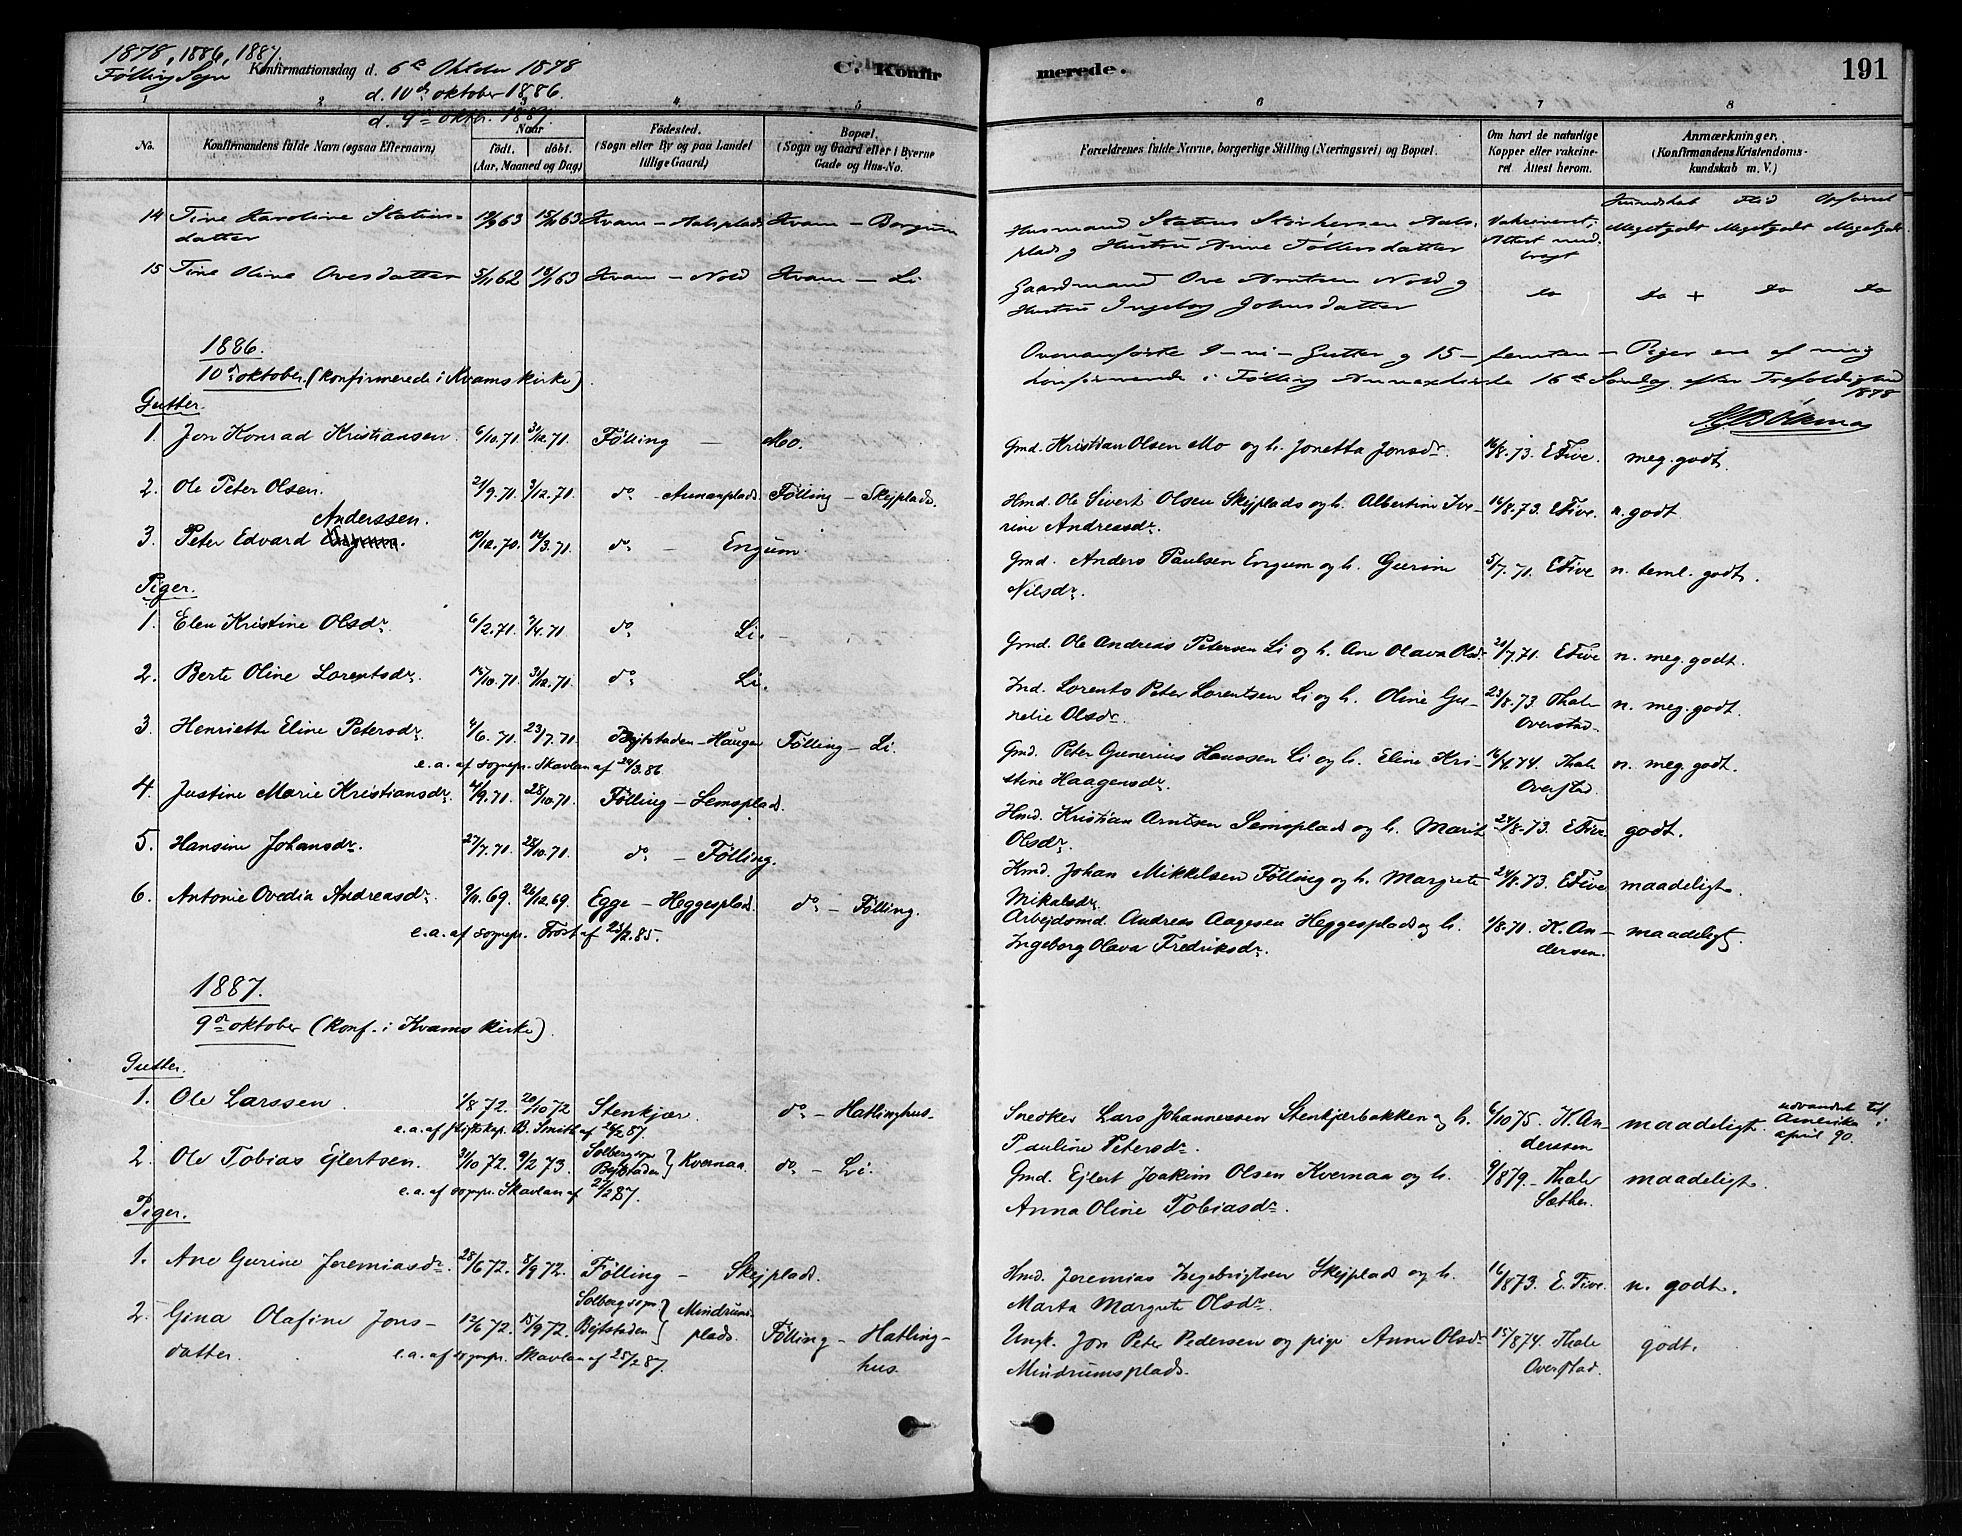 1878, 1886, 1887.
Følling Sogn Konfirmationsdag d. 6te Oktober 1878
d. 10de oktober 1886.
d. 9de oktbr. 1887.
C. Konfirmerede.
191
1 2 3 4 5 6 7 8
No.
Konfirmandens fulde Navn (ogsaa Efternavn)
Naar
født. døbt.
(Aar, Maaned og Dag)
Fødested.
(Sogn eller By og paa Landet
tillige Gaard)
Bopæl.
(Sogn og Gaard eller i Byerne
Gade og Hus-No.
Forældrenes fulde Navne, borgerlige Stilling (Næringsvei) og Bopæl.
Om havt de naturlige
Kopper eller vakcine-
ret. Attest herom.
Anmærkninger.
(Konfirmandens Kristendoms-
kundskab m. V.)
Kundskab Flid Opførsel
14 Tine Karoline Statius- 63 63 Kvam - Aalsplads Kvam - Borgum Husmand Statius Aals- Vakcineret, Megetgodt Megetgodt Megetgodt
datter plads og Hustru Anne Føllersdatter Attest med-
bragt
15 Tine Oline Ovesdatter 5/11 62 63 Kvam - Nold Kvam - Li Gaardmand Ove Arntsen Nold og do do + do do
Hustru Ingeborg Johnsdatter
1886.
10de oktober. (konfirmerede i Kvams kirke).
Ovenanførte 9 - ni - Gutter og 15 - femten - Piger ere af mig
konfirmerede i Følling Annexkirke 16de Søndag efter Trefoldighed
1878
Gutter.
1. Jon Konrad Kristiansen. 6/10.71. 31/12.71. Følling - Mo. Gmd. Kristian Olsen Mo og h. Jonetta Jonsdr. 16/8.73. E Five. meg. godt.
2. Ole Peter Olsen. 21/9.71. 3/12.71. do - Aunanplads. Følling - Skejplads. Hmd. Ole Sivert Olsen Skejplads og h. Albertine Ive- 16/8.73. E Five. n. godt.
rine Andreasdr.
Anderssen.
3. Peter Edvard 19/12.70. 14/3.71. do - Engum. Gmd. Anders Paulsen Engum og h. Gurine 5/7.71. E Five n. teml. godt.
Nilsdr.
Piger.
1. Elen Kristine Olsdr. 6/2.71. 7/4.71 do Li. Gmd. Ole Andreas Petersen Li og h. Ane Olava Olsdr. 21/7.71. E Five n. meg. godt.
2. Berte Oline Lorentsdr. 14/10.71. 3/12.71. do Li. Ind. Lorents Peter Lorentsen Li og h. Oline Gu- 23/8.73. Thale n. meg. godt.
nelie Olsdr. Overstad.
3. Henriette Eline Petersdr. 4/6.71. 23/7.71. Bejtstaden - Haugen Følling - Li. Gmd. Peter Gunerius Hanssen Li og h. Eline Kri- 16/4.74. Thale n. meg. godt.
e.a. af sognepr. Skavlan af 24/3.86 stine Haagensdr. Overstad.
4. Justine Marie Kristiansdr. 4/9.71. 28/10.71. Følling - Semsplads. Hmd. Kristian Arntsen Semsplads og h. Marit 24/8.73. E Five. godt.
Olsdr.
5. Hansine Johansdr. 27/7.71. 28/10.71. do - Følling. Hmd. Johan Mikkelsen Følling og h. Margrete 24/8.73. E Five maadeligt.
Mikalsdr.
6. Antonie Ovedia Andreasdr. 9/11.69. 26/12.69. Egge - Heggesplads. do - Følling. Arbejdsmd. Andreas Aagesen Heggesplads og h. 1/8.71. K. An- maadeligt.
e.a. af sognepr. Frost af 23/2.85. Ingeborg Olava Fredriksdr. dersen.
1887.
9de oktober (konf. i Kvams kirke).
Gutter.
1. Ole Larssen. 1/8 72. 20/10 72 Stenkjær. do - Hatlinghus. Snedker Lars Johannessen Stenkjærbakken og h. 6/10 75. K. An- maadeligt. udvandret til
e.a. af stiftskap. B. Smith af 26/2 87. Pauline Petersdr. dersen Amerika i
april 90.
2. Ole Tobias Ejlertsen. 31/10 72. 9/2 73. Solberg sogn Bejtstaden } Kvernaa. do - Li. Gmd. Ejlert Joakim Olsen Kvernaa og h. 9/8 79. Thale maadeligt.
e.a. af sognepr. Skavlan af 27/2 87. Anna Oline Tobiasdr. Sæther.
Piger.
1. Ane Gurine Jeremiasdr. 28/6 72. 8/9 72. Følling - Skejplads. Hmd. Jeremias Ingebrigtsen Skejplads og h. 16/8 73. E. Five. n. godt.
Marta Margrete Olsdr.
2. Gina Olafine Jons- 12/6 72. 15/9 72. Solberg sogn Bejtstaden } Mindrums- Følling - Hatling- Ungk. Jon Peter Pedersen og pige Anne Olsdr. 15/8 74. Thale godt.
datter. plads. hus. Mindrumsplads. Overstad.
e.a. af sognepr. Skavlan af 25/2 87.